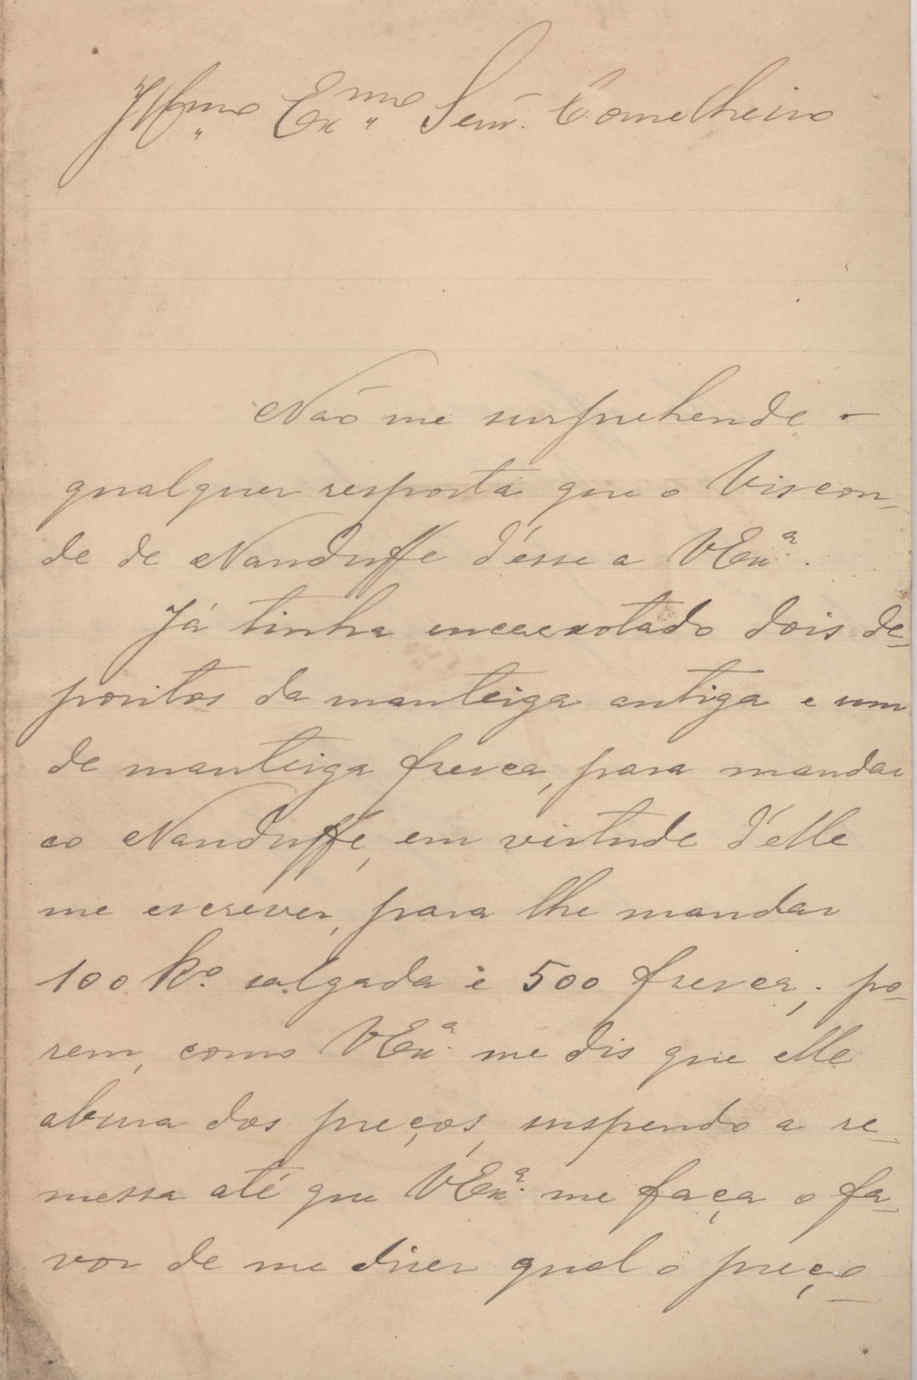 Illmo Exmo Senr. Conselheiro
Não me surprehende
qualquer resposta que o Viscon-
de de Nanduffe désse a VExa.
Já tinha encaixotado dois de-
positos da manteiga antiga e um
de manteiga fresca, para mandar
ao Nanduffe, em virtude d'elle
me escrever, para lhe mandar
100 Ko. salgada e 500 fresca; po-
rem, como VExa. me dis que elle
abusa dos preços, suspendo a re-
messa até que VExa. me faça o fa-
vor de me dizer qual o preço